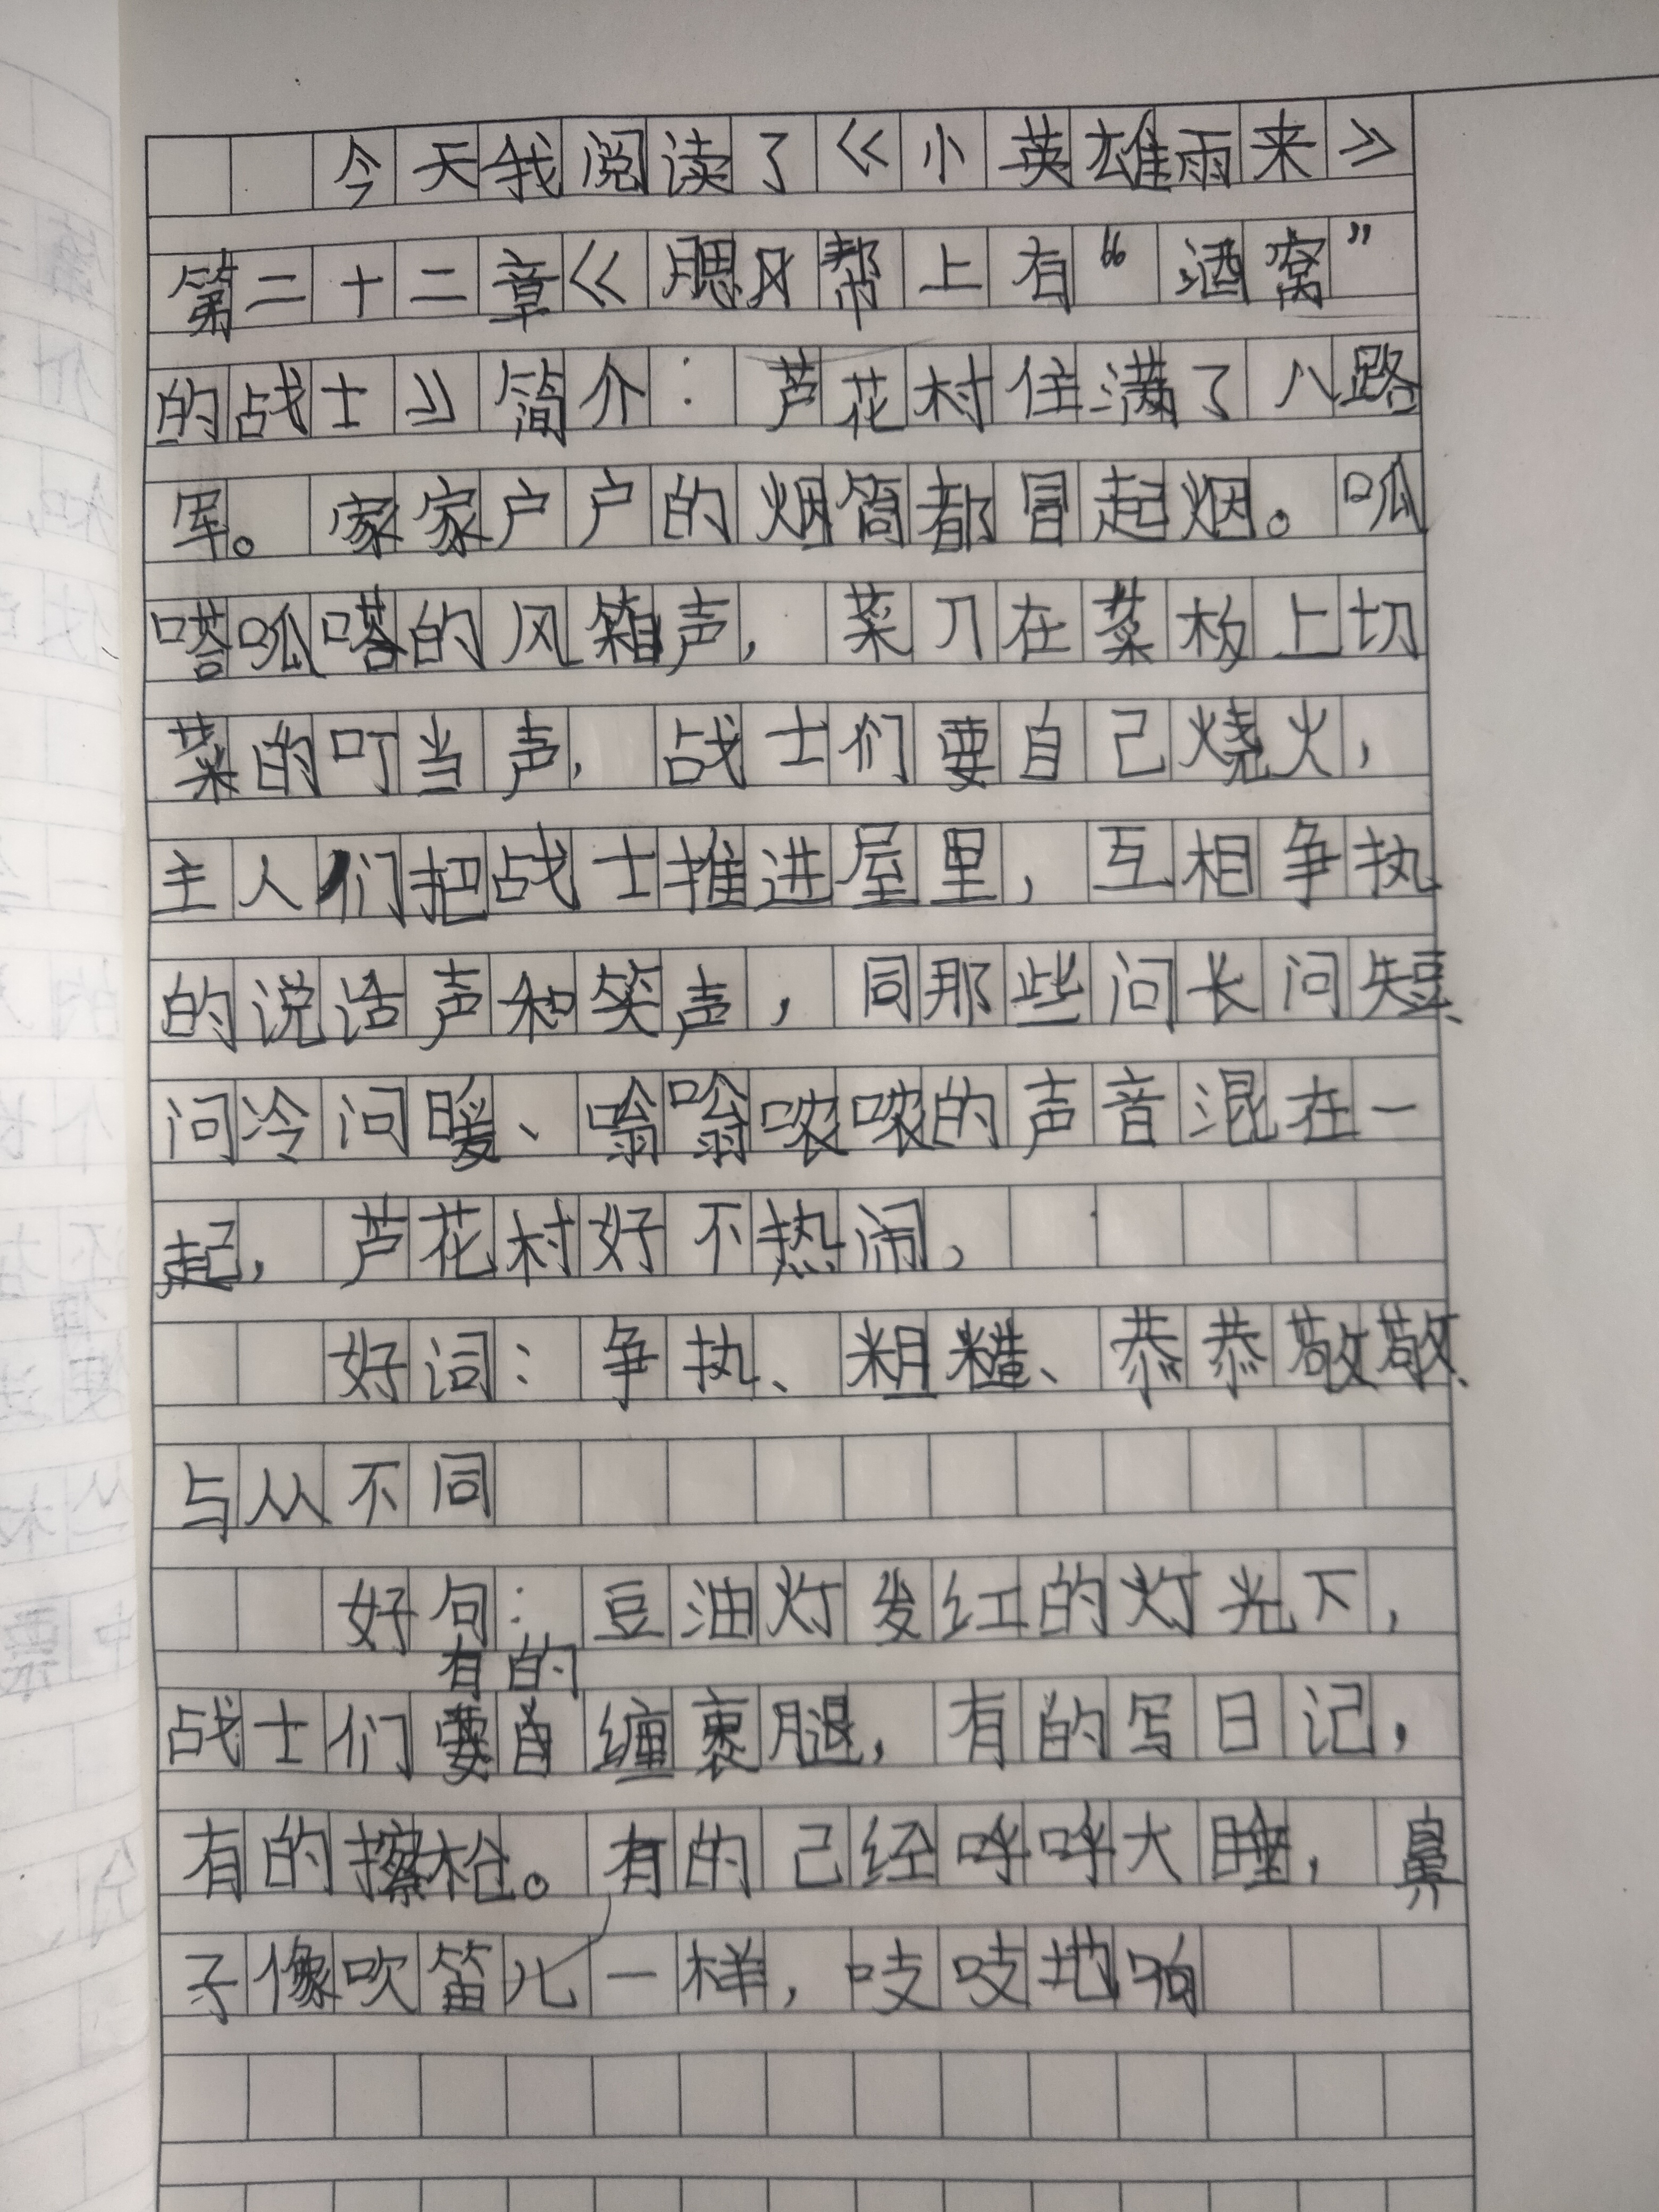 今天我阅读了《小英雄雨来》
第二十二章《腮帮上有“酒窝”
的战士》简介：芦花村住满了八路
军。家家户户的烟筒都冒起烟。呱
嗒呱嗒的风箱声，菜刀在菜板上切
菜的叮当声，战士们要自己烧火，
主人们把战士推进屋里，互相争执
的说话声和笑声，同那些问长问短、
问冷问暖、嗡嗡哝哝的声音混在一
起，芦花村好不热闹。
好词：争执、粗糙、恭恭敬敬、
与从不同
好句：豆油灯发红的灯光下，
有的
战士们缠裹腿，有的写日记，
有的擦枪。有的己经呼呼大睡，鼻
子像吹笛儿一样，吱吱地响